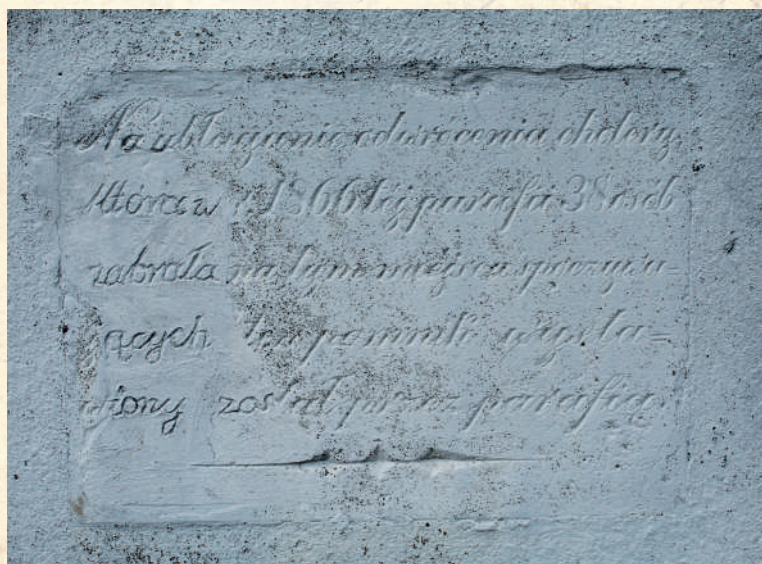 Na ubłaganie odwrócenia cholery,
która w r. 1866 téj parafii 38 osób
zabrała na tym miejscu spoczywa-
jących ten pomnik wysta=
wiony został przez parafią.